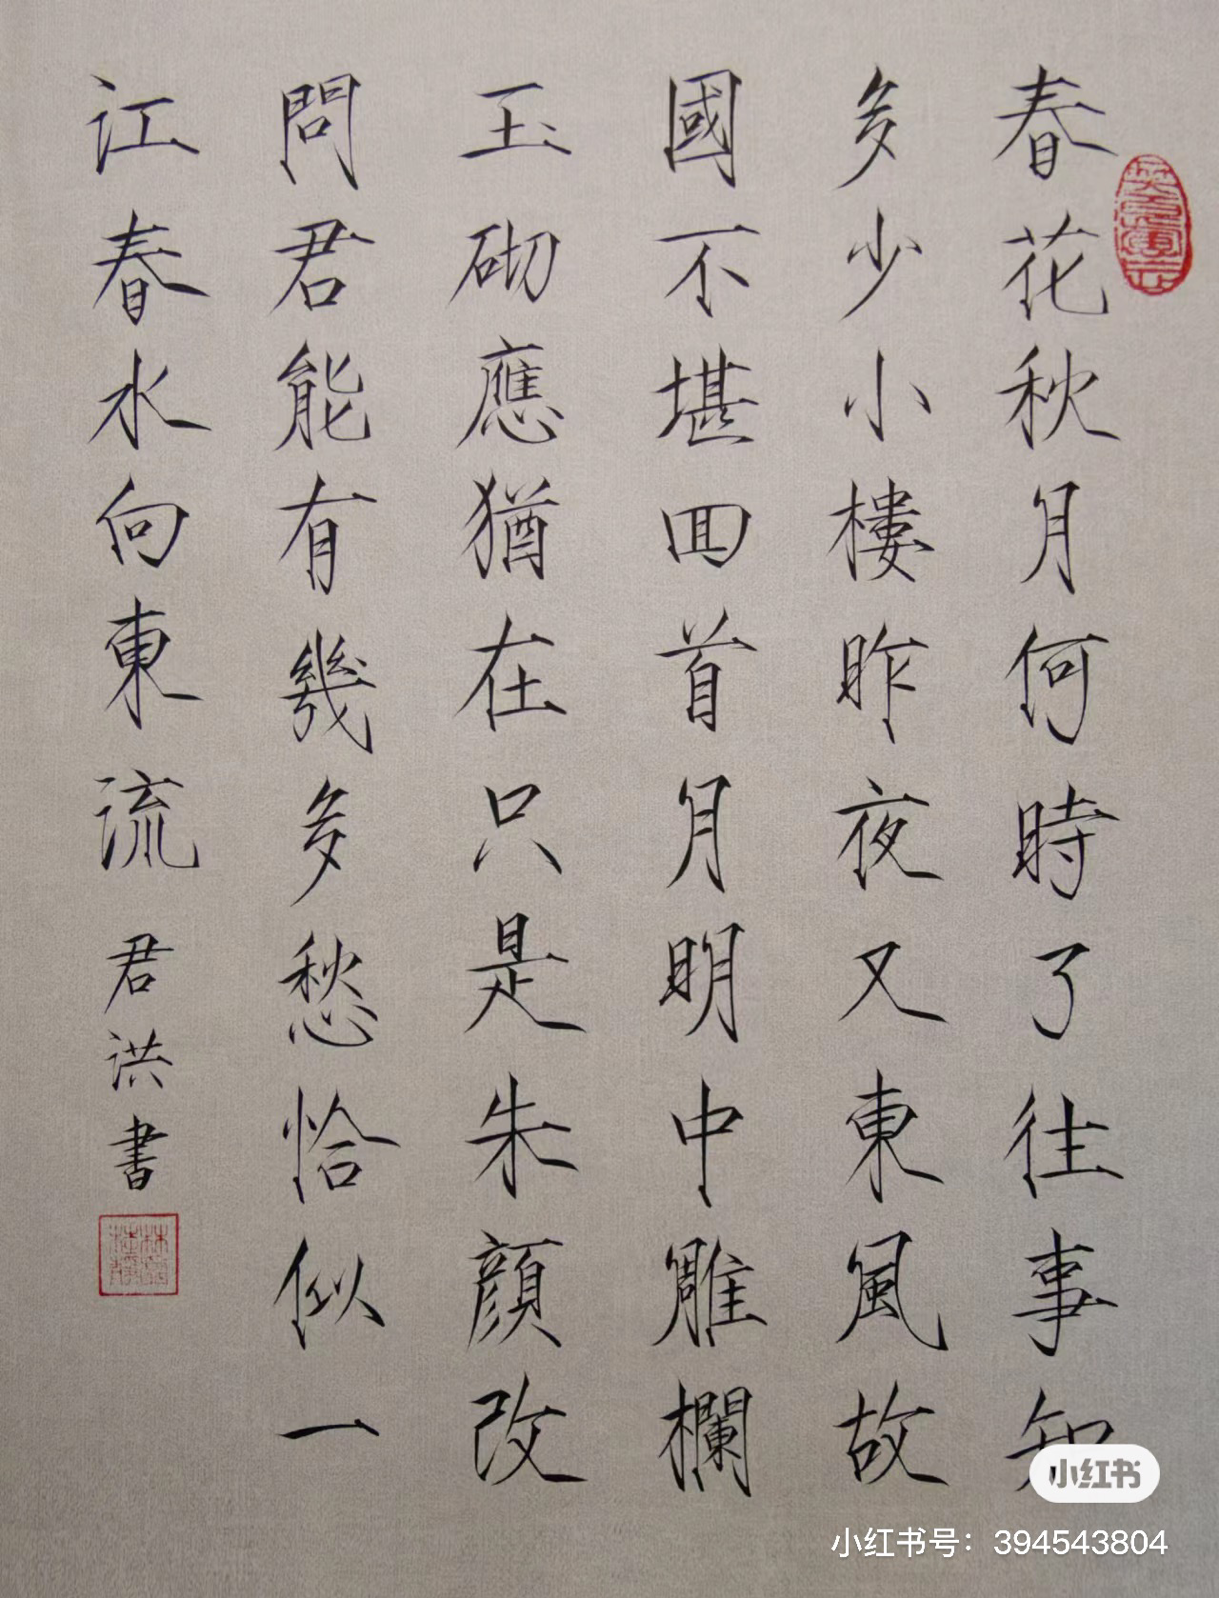 春花秋月何時了往事知
多少小樓昨夜又東風故
國不堪回首月明中雕欄
玉砌應猶在只是朱顔改
問君能有幾多愁恰似一
江春水向東流
君洪書
小红书
小红书号：394543804